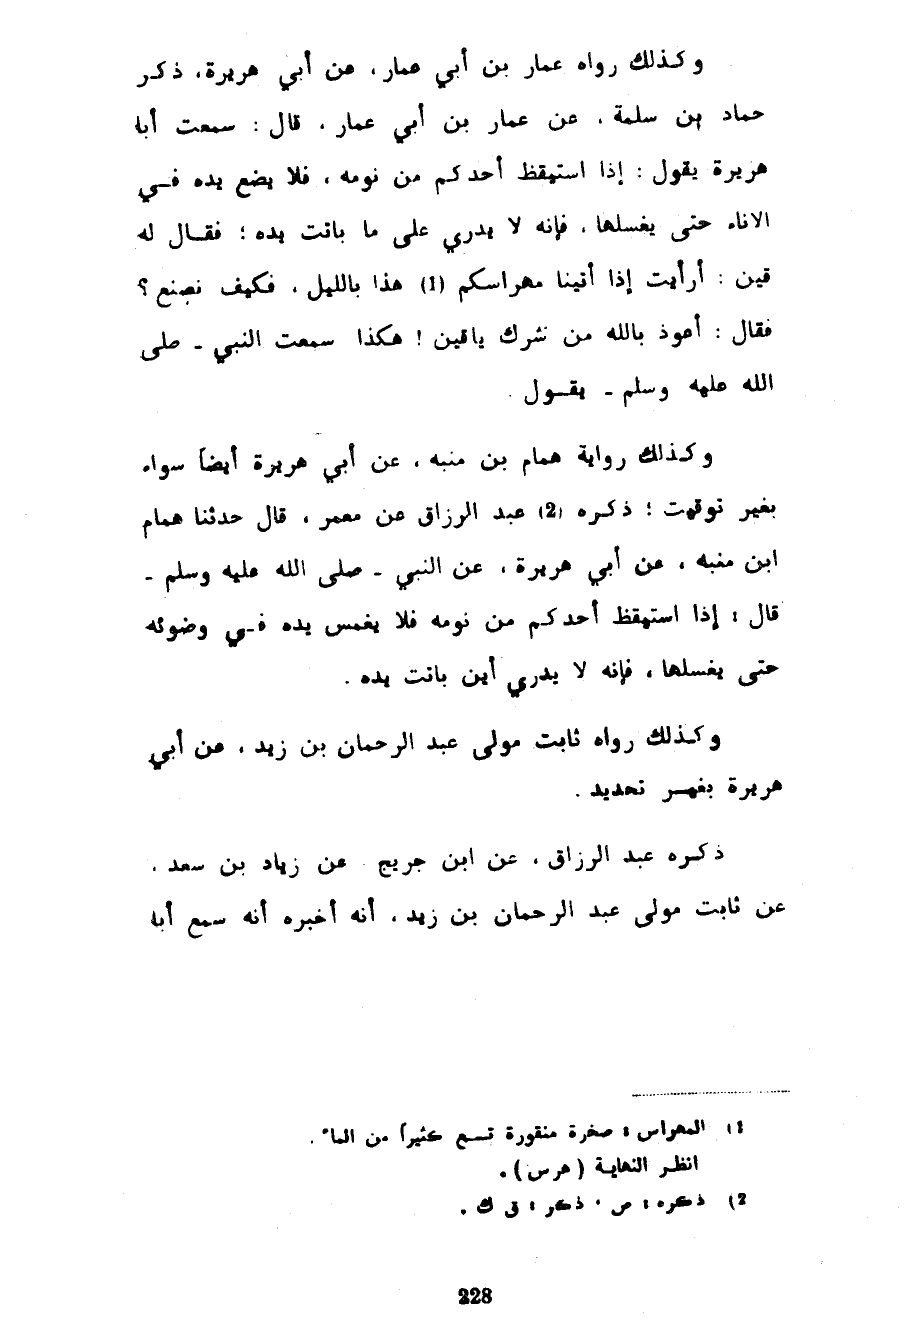 وكذلك رواه عمار بن أبي عمار، عن أبي هريرة، ذكر
حماد بن سلمة، عن عمار بن أبي عمار، قال : سمعت أبا
هريرة يقول : إذا استيقظ أحدكم من نومه، فلا يضع يده فـي
الاناء حتى يغسلها، فإنه لا يدري على ما باتت يده؛ فقـال له
قين : أرأيت إذا أتينا مهراسكم (1) هذا بالليل، فكيف نصنع؟
فقال : أعوذ بالله من شرك ياقين! هكذا سمعت النبي ـ صلى
الله عليه وسلم ـ يقـول.
وكذلك رواية همام بن منبه، عن أبي هريرة أيضاً سواء
بغير توقيت؛ ذكره (2) عبد الرزاق عن معمر، قال حدثنا همام
ابن منبه، عن أبي هريرة، عن النبي ـ صلى الله عليه وسلم ـ
قال : إذا استيقظ أحدكم من نومه فلا يغمس يده فـي وضوئه
حتى يغسلها، فإنه لا يدري أين باتت يده.
وكذلك رواه ثابت مولى عبد الرحمان بن زيد، عن أبي
هريرة بغيـر تحديد.
ذكره عبد الرزاق، عن ابن جريج عن زياد بن سعد،
عن ثابت مولى عبد الرحمان بن زيد، أنه أخبره أنه سمع أبا
1) المهراس : صخرة منقورة تسـع كثيراً من الماء.
انظـر النهايـة (هرس).
2) ذكره : ص · ذكر : ق ك.
228